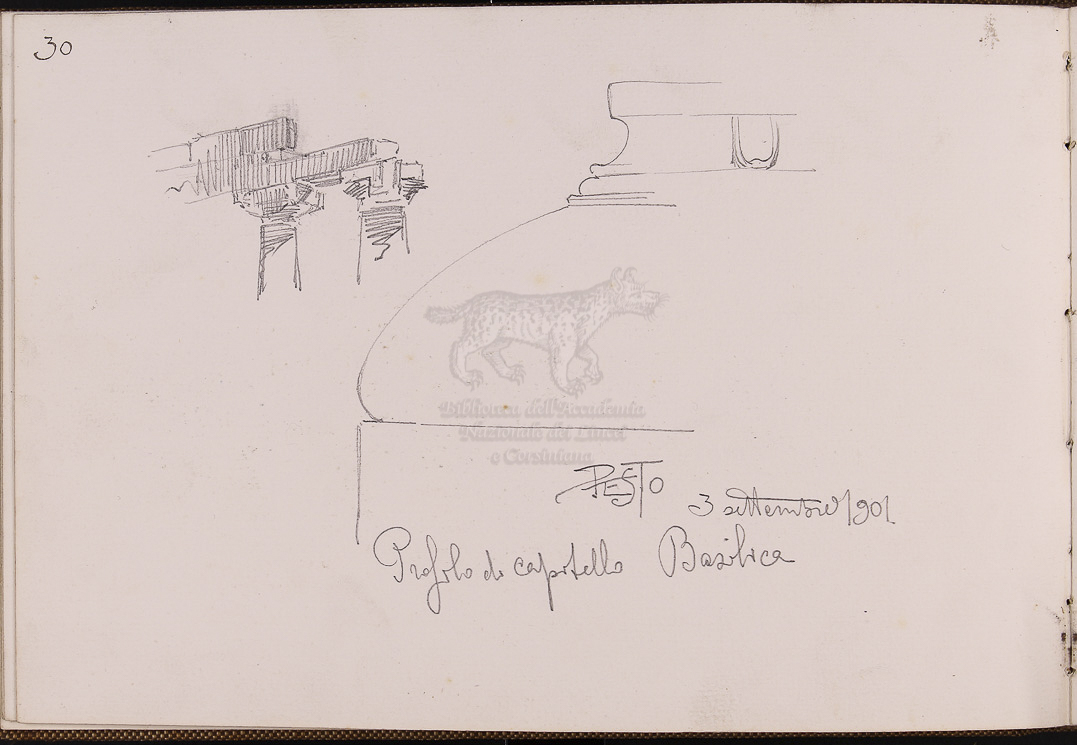 30
Biblioteca dell'Accademia
Nazionale dei Lincei
e Corsiniana
PESTO 3 settembre 1901
Profilo di capitello Basilica